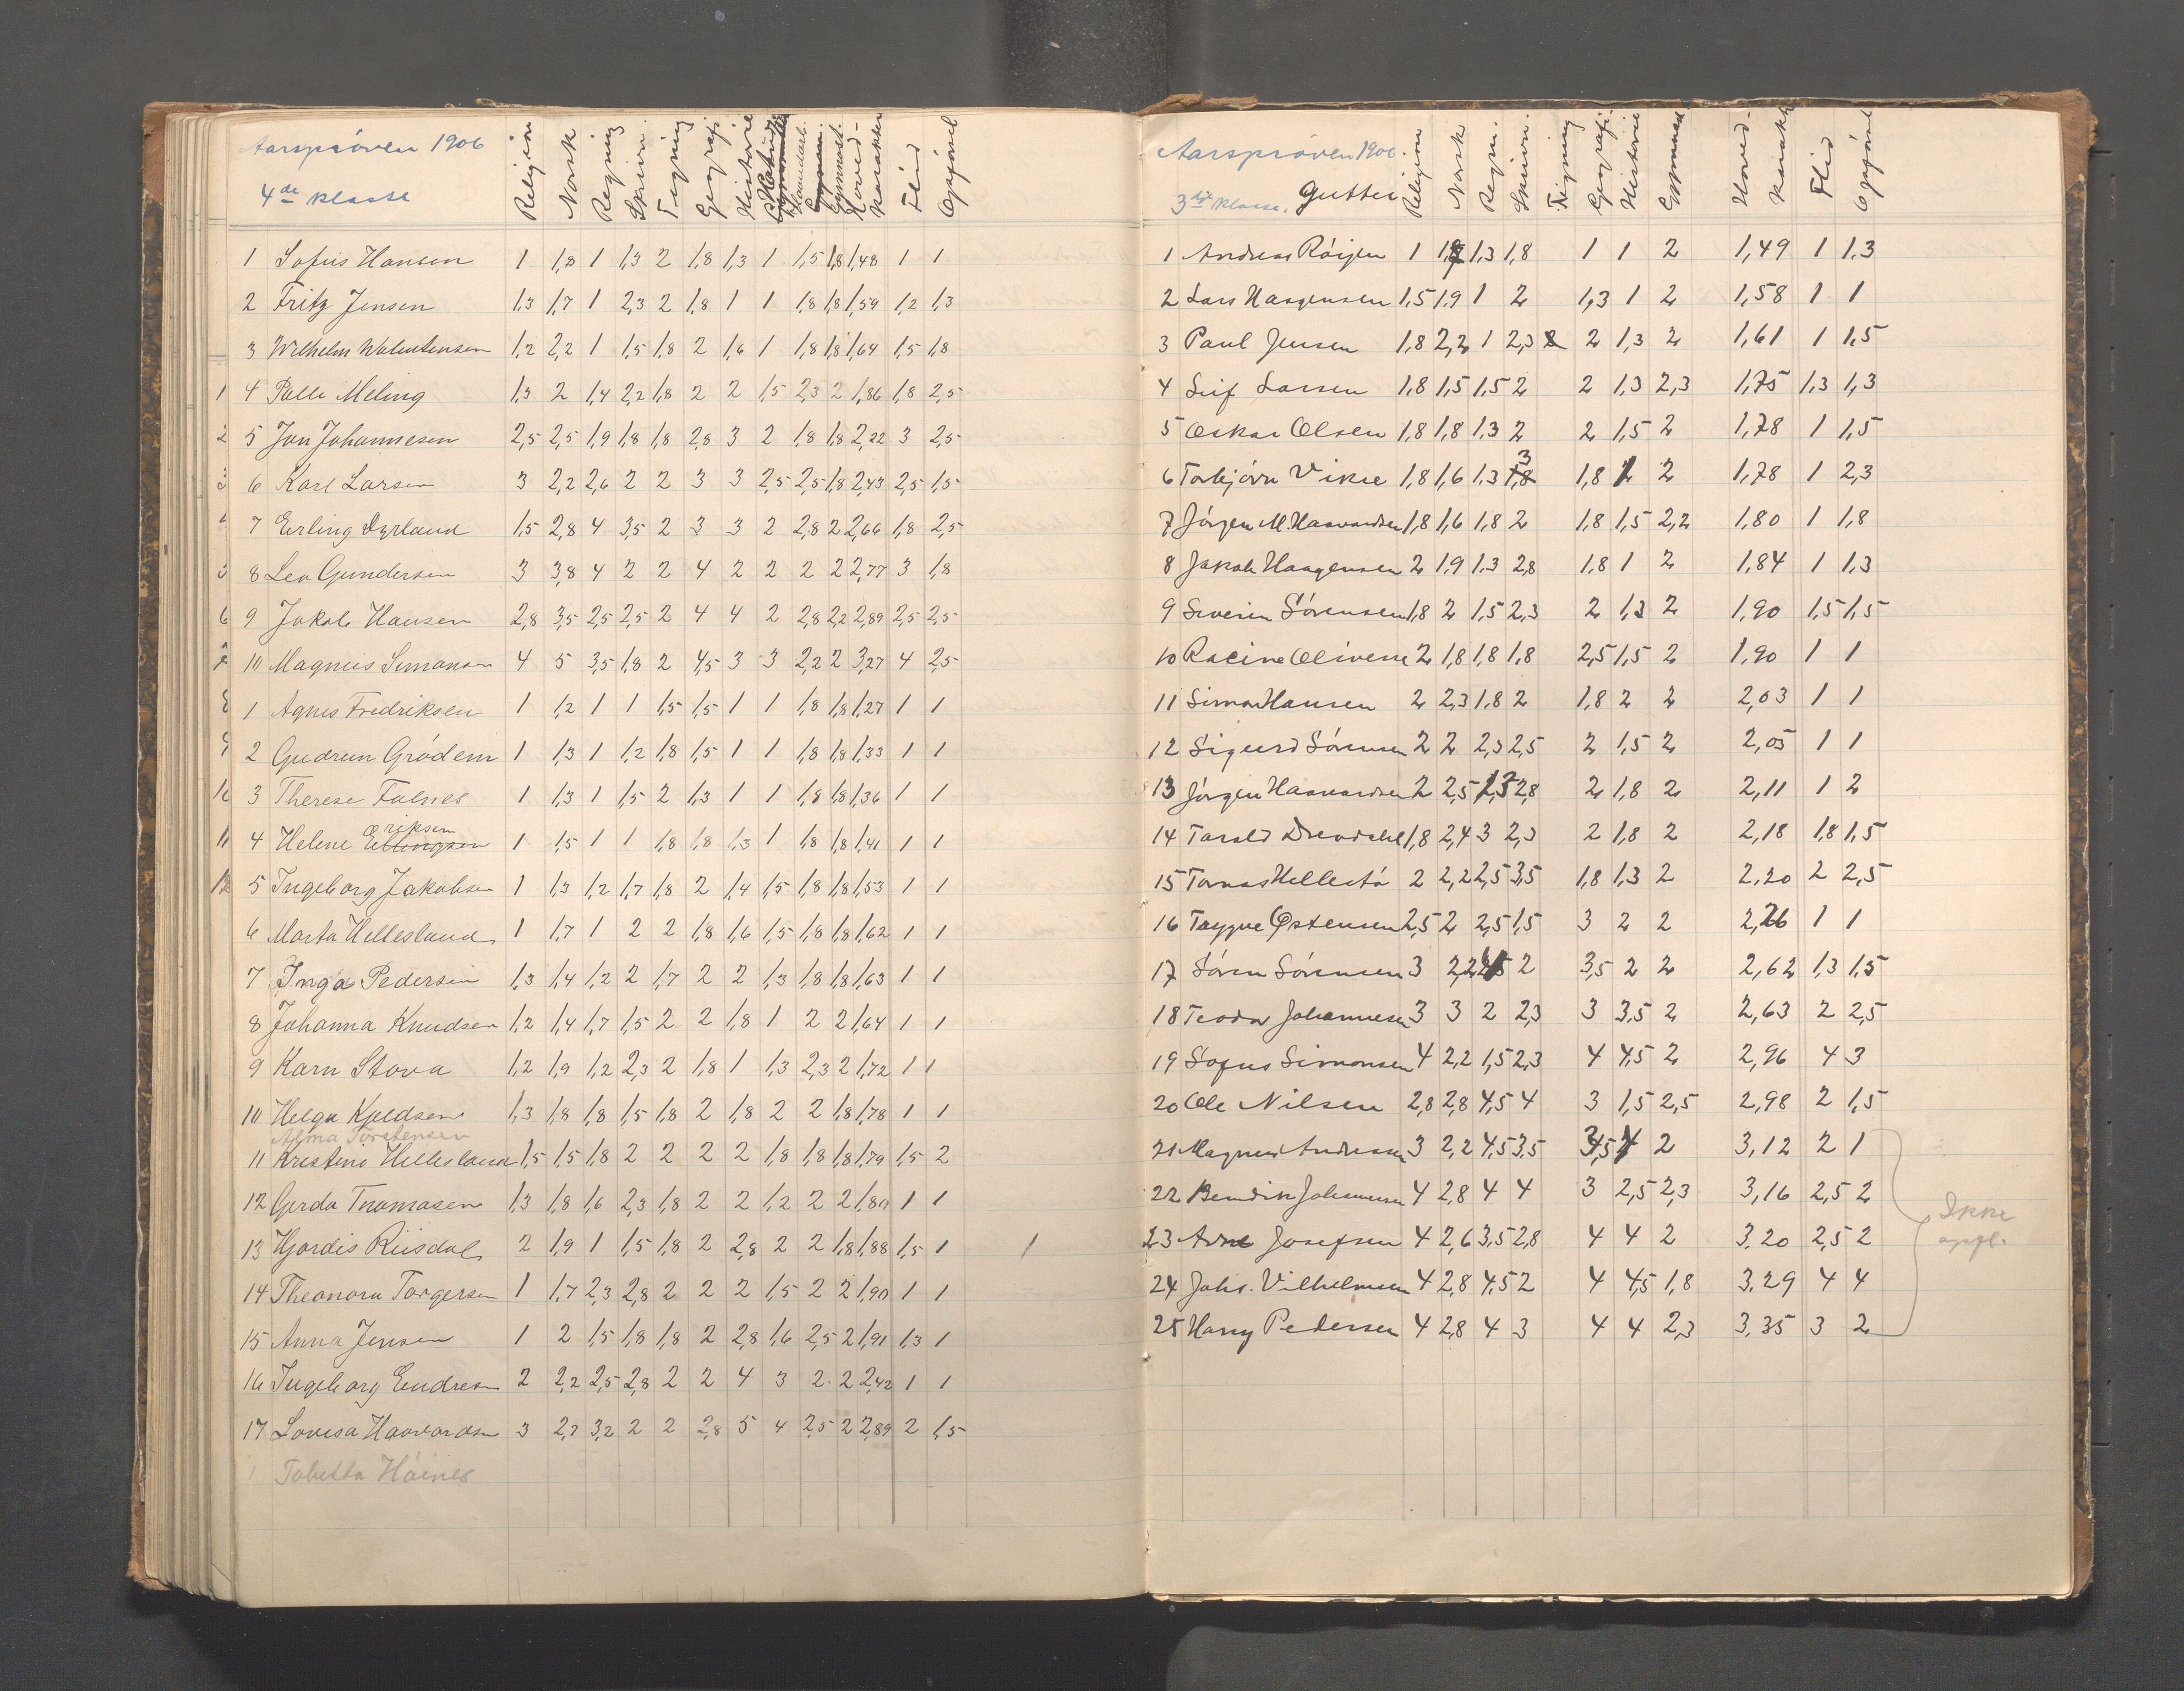 Aarsprøven 1906
4de klasse
Religion Norsk Regning Skrivn. Tegning Geografi Historie Naturk. Haandarb. Gymnast. Hoved-karakter Flid Opførsel
1 Sofus Hansen 1 1,8 1 1,3 2 1,8 1,3 1 1,5 1,8 1,48 1 1
2 Fritz Jensen 1,3 1,7 1 2,3 2 1,8 1 1 1,8 1,8 1,59 1,2 1,3
3 Wilhelm Walentensen 1,2 2,2 1 1,5 1,8 2 1,6 1 1,8 1,8 1,64 1,5 1,8
1 4 Palle Meling 1,3 2 1,4 2,2 1,8 2 2 1,5 2,3 2 1,86 1,8 2,5
2 5 Jon Johannesen 2,5 2,5 1,9 1,8 1,8 2,8 3 2 1,8 1,8 2,22 3 2,5
3 6 Karl Larsen 3 2,2 2,6 2 2 3 3 2,5 2,5 1,8 2,43 2,5 1,5
4 7 Erling Dyrland 1,5 2,8 4 3,5 2 3 3 2 2,8 2 2,66 1,8 2,5
5 8 Leo Gundersen 3 3,8 4 2 2 4 2 2 2 2 2,77 3 1,8
6 9 Jakob Hansen 2,8 3,5 2,5 2,5 2 4 4 2 2,8 2,2 2,89 2,5 2,5
7 10 Magnus Simonsen 4 5 3,5 1,8 2 4,5 3 3 2,2 2 3,27 4 2,5
8 1 Agnes Fredriksen 1 1,2 1 1 1,5 1,5 1 1 1,8 1,8 1,27 1 1
9 2 Gudrun Grødem 1 1,3 1 1,2 1,8 1,5 1 1 1,8 1,8 1,33 1 1
10 3 Therese Falnes 1 1,3 1 1,5 2 1,3 1 1 1,8 1,8 1,36 1 1
11 4 Helene Ellingsen Eriksen 1 1,5 1 1 1,8 1,8 1,3 1 1,8 1,8 1,41 1 1
12 5 Ingeborg Jakobsen 1 1,3 1,2 1,7 1,8 2 1,4 1,5 1,8 1,8 1,53 1 1
6 Marta Hellesland 1 1,7 1 2 2 1,8 1,6 1,5 1,8 1,8 1,62 1 1
7 Inga Pedersen 1,3 1,4 1,2 2 1,7 2 2 1,3 1,8 1,8 1,63 1 1
8 Johanna Knudsen 1,2 1,4 1,7 1,5 2 2 1,8 1 2 2 1,64 1 1
9 Karn Stova 1,2 1,9 1,2 2,3 2 1,8 1 1,3 2,3 2 1,72 1 1
10 Helga Kjeldsen 1,3 1,8 1,8 1,5 1,8 2 1,8 2 2 1,8 1,78 1 1
Alma Torstensen
11 Kristine Hellesland 1,5 1,5 1,8 2 2 2 2 1,8 1,8 1,8 1,79 1,5 2
12 Gerda Thomasen 1,3 1,8 1,6 2,3 1,8 2 2 1,2 2 2 1,80 1 1
13 Hjørdis Riisdal 2 1,9 1 1,5 1,8 2 2,8 2 2 1,8 1,88 1,5 1 1
14 Theonora Torgersen 1 1,7 2,3 2,8 2 2 2 1,5 2 2 1,90 1 1
15 Anna Jensen 1 2 1,5 1,8 1,8 2 2,8 1,6 2,5 2 1,91 1,3 1
16 Ingeborg Endresen 2 2,2 2,5 2,8 2 2 4 3 2 2 2,42 1 1
17 Lovisa Haavardsen 3 2,7 3,2 2 2 2,8 5 4 2,5 2 2,89 2 1,5
1 Tobetta Høines
Aarsprøven 1906.
3die klasse. Gutter
Religion Norsk Regn. Skrivn. Tegning Geografi Historie Gymnast Hoved-karakter Flid Opførsel
1 Andreas Røigen 1 1,9 1,3 1,8 1 1 2 1,49 1 1,3
2 Lars Haagensen 1,5 1,9 1 2 1,3 1 2 1,58 1 1
3 Paul Jensen 1,8 2,2 1 2,3 2 2 1,3 2 1,61 1 1,5
4 Leif Larsen 1,8 1,5 1,5 2 2 1,3 2,3 1,75 1,3 1,3
5 Oskar Olsen 1,8 1,8 1,3 2 2 1,5 2 1,78 1 1,5
6 Torbjørn Vikse 1,8 1,6 1,3 1,8 3 1,8 1 2 1,78 1 2,3
7 Jørgen M. Haavardsen 1,8 1,6 1,8 2 1,8 1,5 2,2 1,80 1 1,8
8 Jakob Haagensen 2 1,9 1,3 2,8 1,8 1 2 1,84 1 1,3
9 Severin Sørensen 1,8 2 1,5 2,3 2 1,3 2 1,90 1,5 1,5
10 Racine Olivesen 2 1,8 1,8 1,8 2,5 1,5 2 1,90 1 1
11 Simon Hansen 2 2,3 1,8 2 1,8 2 2 2,03 1 1
12 Sigurd Sørensen 2 2 2,3 2,5 2 1,5 2 2,05 1 1
13 Jørgen Haavardsen 2 2,5 1,5 2,8 2 1,8 2 2,11 1 2
14 Tarald Drevdahl 1,8 2,4 3 2,3 2 1,8 2 2,18 1,8 1,5
15 Tomas Hellestø 2 2,2 2,5 3,5 1,8 1,3 2 2,20 2 2,5
16 Trygve Østensen 2,5 2 2,5 1,5 3 2 2 2,26 1 1
17 Søren Sørensen 3 2,2 4,5 2 3,5 2 2 2,62 1,3 1,5
18 Teodor Johannesen 3 3 2 2,3 3 3,5 2 2,63 2 2,5
19 Sofus Simonsen 4 2,2 1,5 2,3 4 4,5 2 2,96 4 3
20 Ole Nilsen 2,8 2,8 4,5 4 3 1,5 2,5 2,98 2 1,5
21 Magnus Andresen 3 2,2 4,5 3,5 3,5 4 2 3,12 2 1
22 Bendik Johannesen 4 2,8 4 4 3 2,5 2,3 3,16 2,5 2
23 Arne Josefsen 4 2,6 3,5 2,8 4 4 2 3,20 2,5 2
24 Johs. Vilhelmsen 4 2,8 4,5 2 4 4,5 1,8 3,29 4 4
25 Harry Pedersen 4 2,8 4 3 4 4 2,3 3,35 3 2
Ikke
opfl.